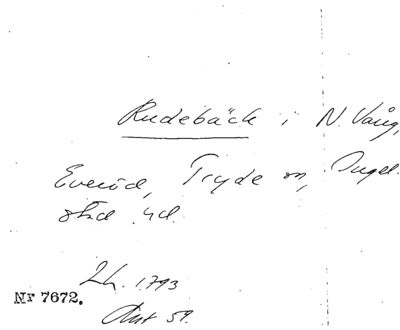 Rudebäck i N. Vång,
Everöd, Tryde sn, Ingel-
stad hd.
Lh. 1793
Nr 7672.
Akt 59.